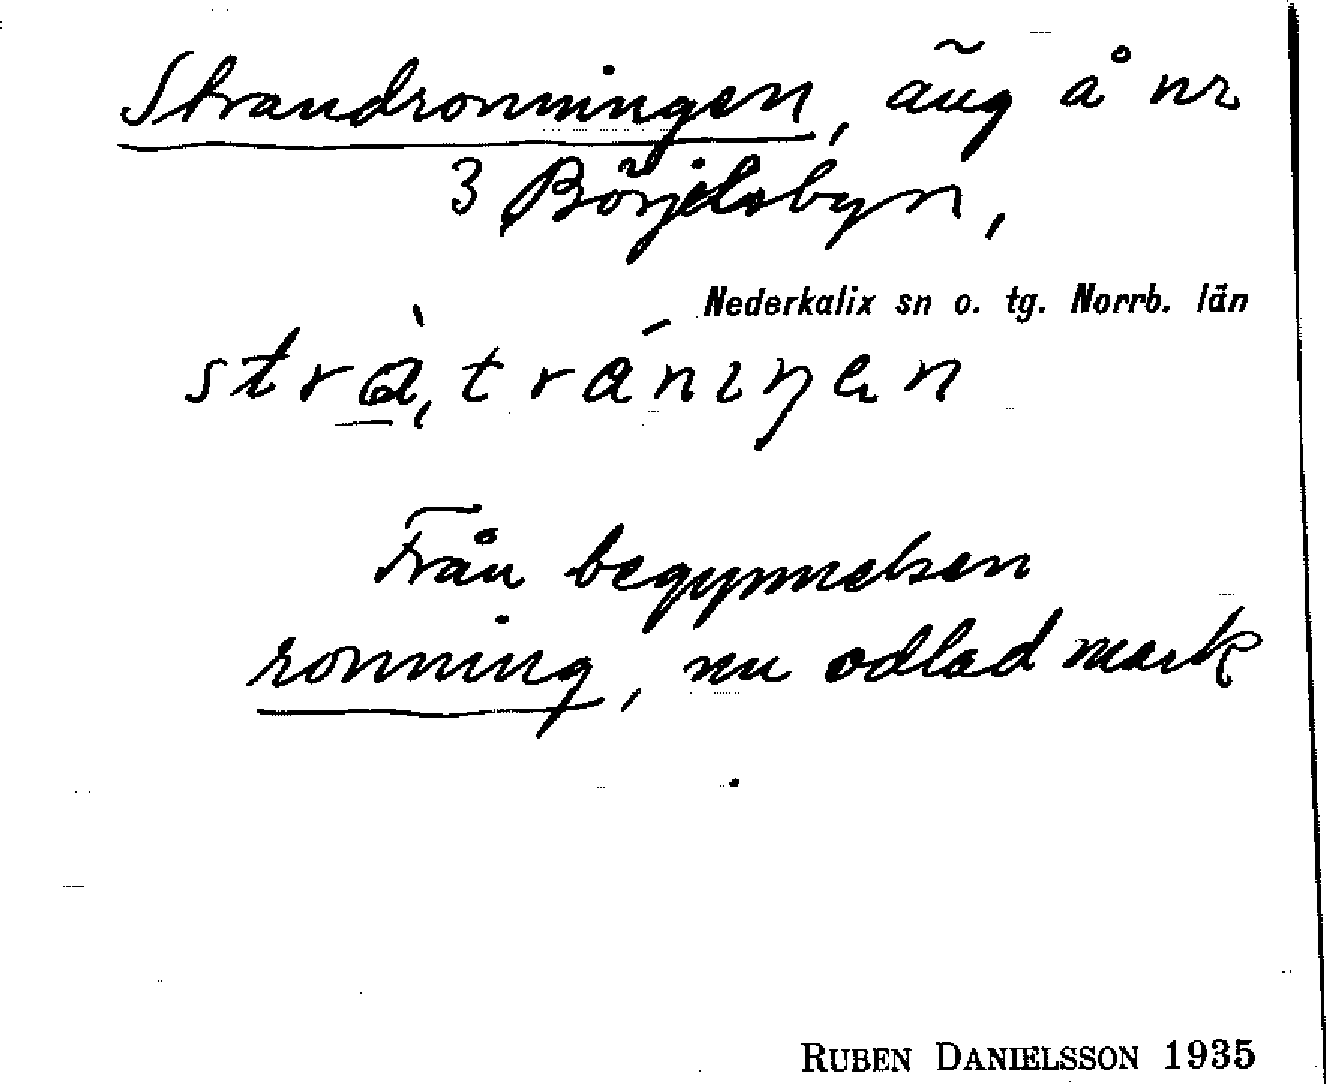 Strandronningen, äng å nr
3 Börjelsbyn,
Nederkalix sn o. tg. Norrb. län
strà̱ˌtrániŋan
Från begynnelsen
ronning, nu odlad mark
RUBEN DANIELSSON 1935